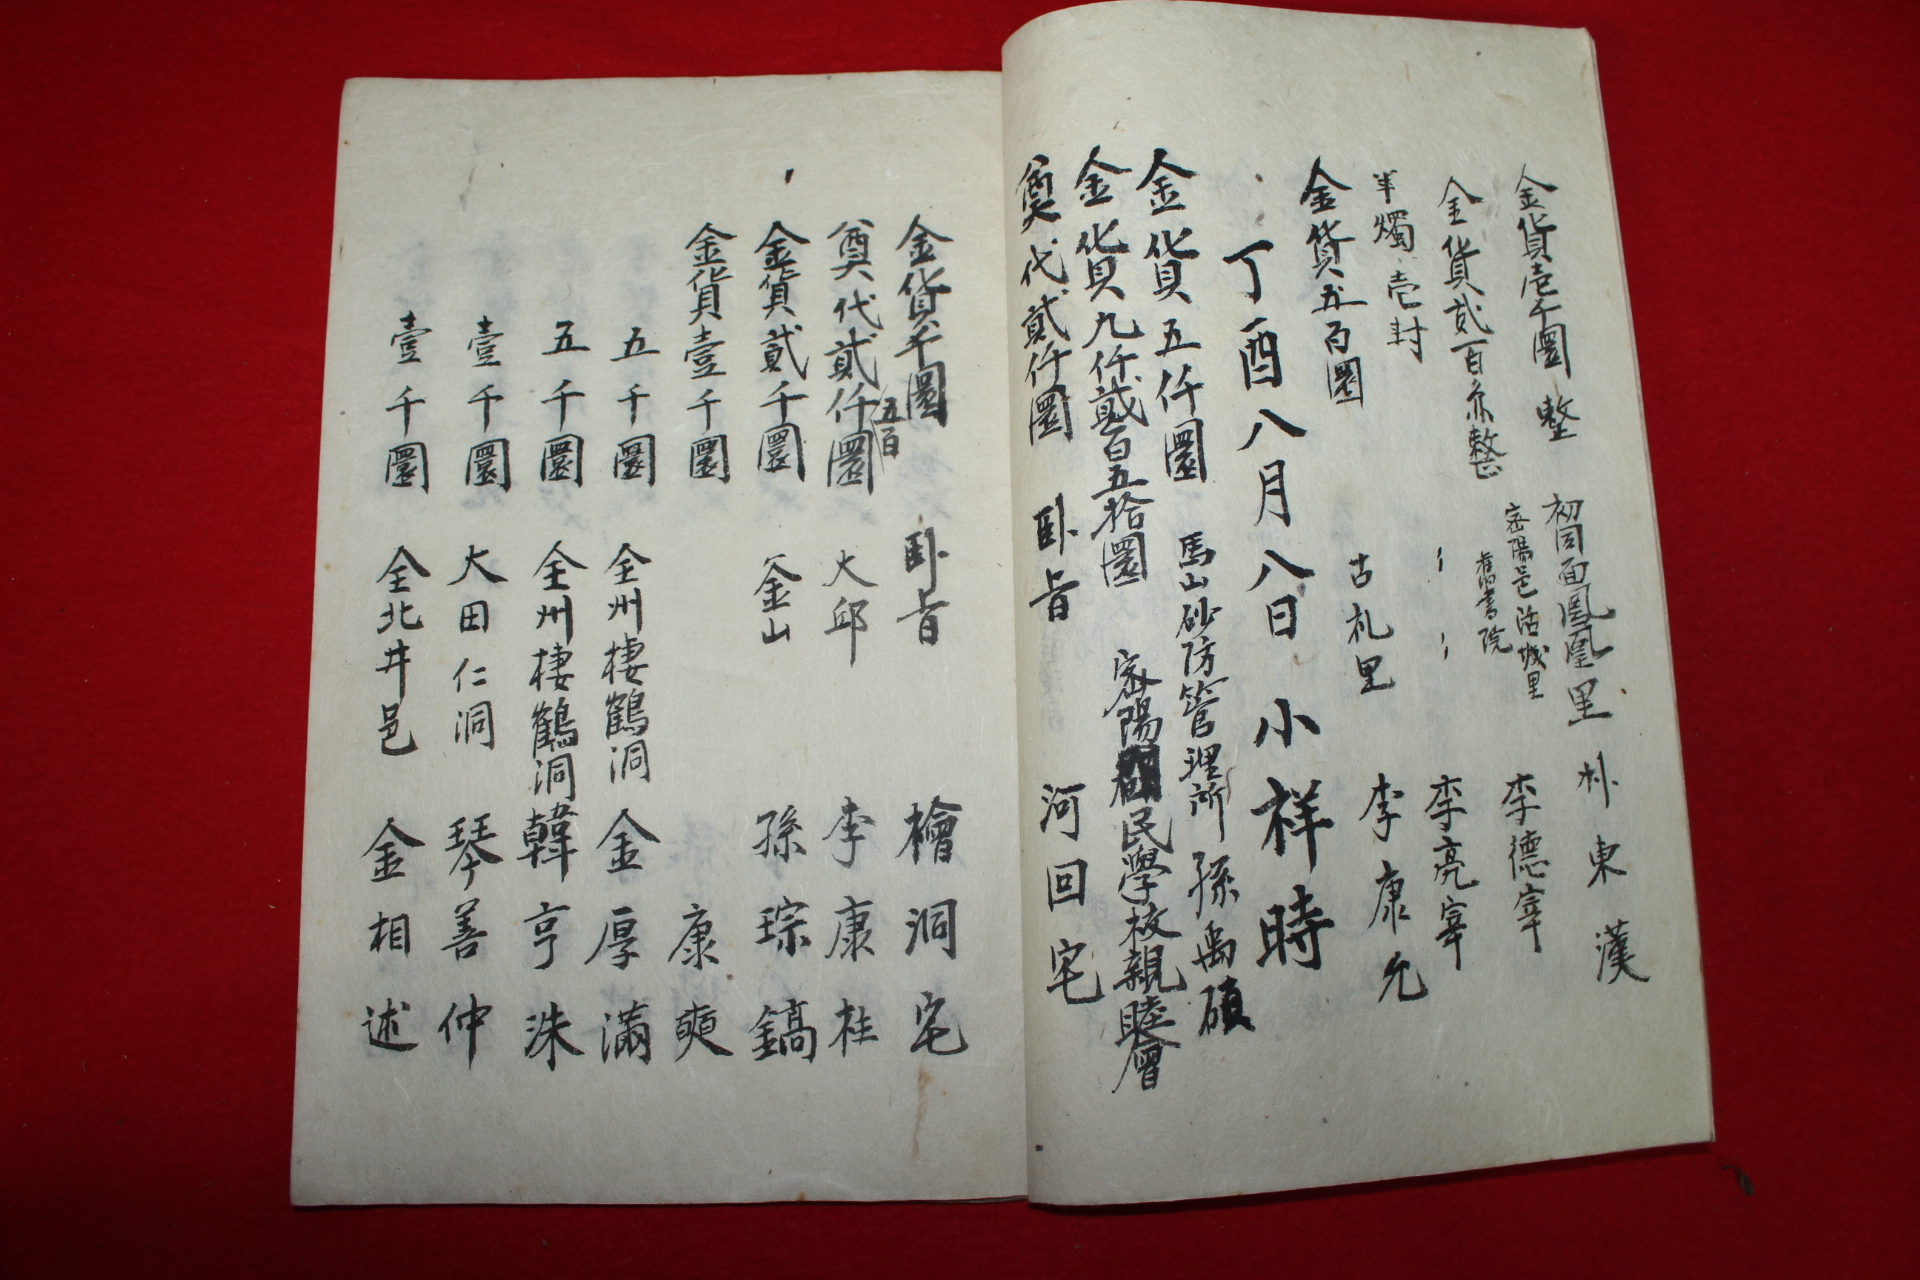 金貨壱千圜整 初同面鳳凰里 朴東漢
金貨貳百 整 密陽邑活城里 舊書院 李德宰
半燭壱封 〃 〃 李亮宰
金貨五百圜 古札里 李康允
丁酉八月八日 小祥時
金貨五仟圜 馬山砂防管理所 孫禹碩
金貨九仟貳百五拾圜 密陽 民學校親睦會
奠代貳仟圜 臥旨 河回宅
金貨千圜 臥旨 檜洞宅
奠代貳仟五百圜 大邱 李康桂
金貨貳千圜 釜山 孫琮鎬
金貨壹千圜 康奭
五千圜 全州棲鶴洞 金厚滿
五千圜 全州棲鶴洞 韓亨洙
壹千圜 大田仁洞 琴善仲
壹千圜 全北井邑 金相述